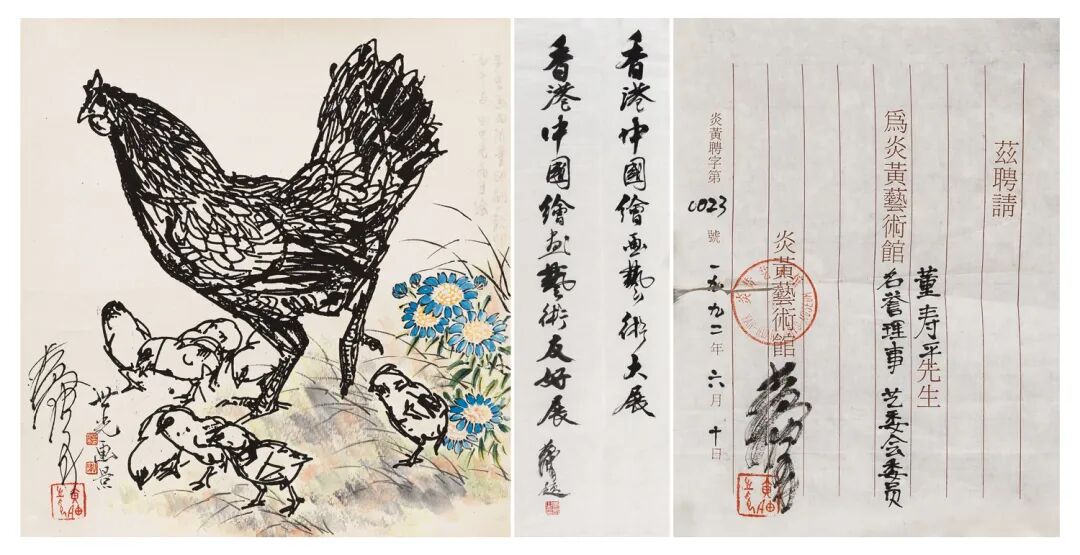 世光画景
香港中國繪画藝术大展
香港中國繪畫藝術友好展
茲聘請
董寿平先生
為炎黃藝術館名誉理事 艺委会委员
炎黃藝術館
炎黃聘字第0023號 一九九一年六月十日